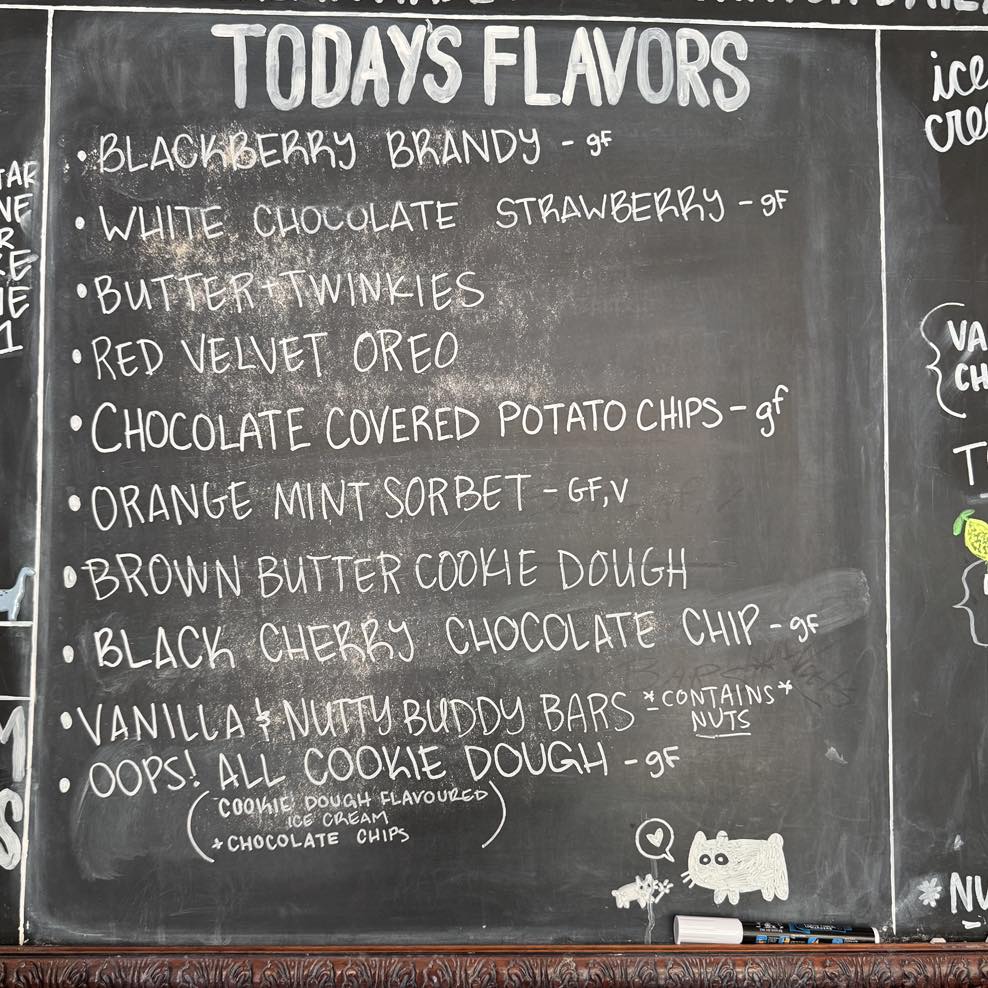 TODAY'S FLAVORS
• BLACKBERRY BRANDY - gf
• WHITE CHOCOLATE STRAWBERRY - gf
• BUTTER + TWINKIES
• RED VELVET OREO
• CHOCOLATE COVERED POTATO CHIPS - gf
• ORANGE MINT SORBET - GF, V
• BROWN BUTTER COOKIE DOUGH
• BLACK CHERRY CHOCOLATE CHIP - gf
• VANILLA & NUTTY BUDDY BARS *CONTAINS*
NUTS
• OOPS! ALL COOKIE DOUGH - gf
(COOKIE DOUGH FLAVOURED
ICE CREAM
+ CHOCOLATE CHIPS)
ice